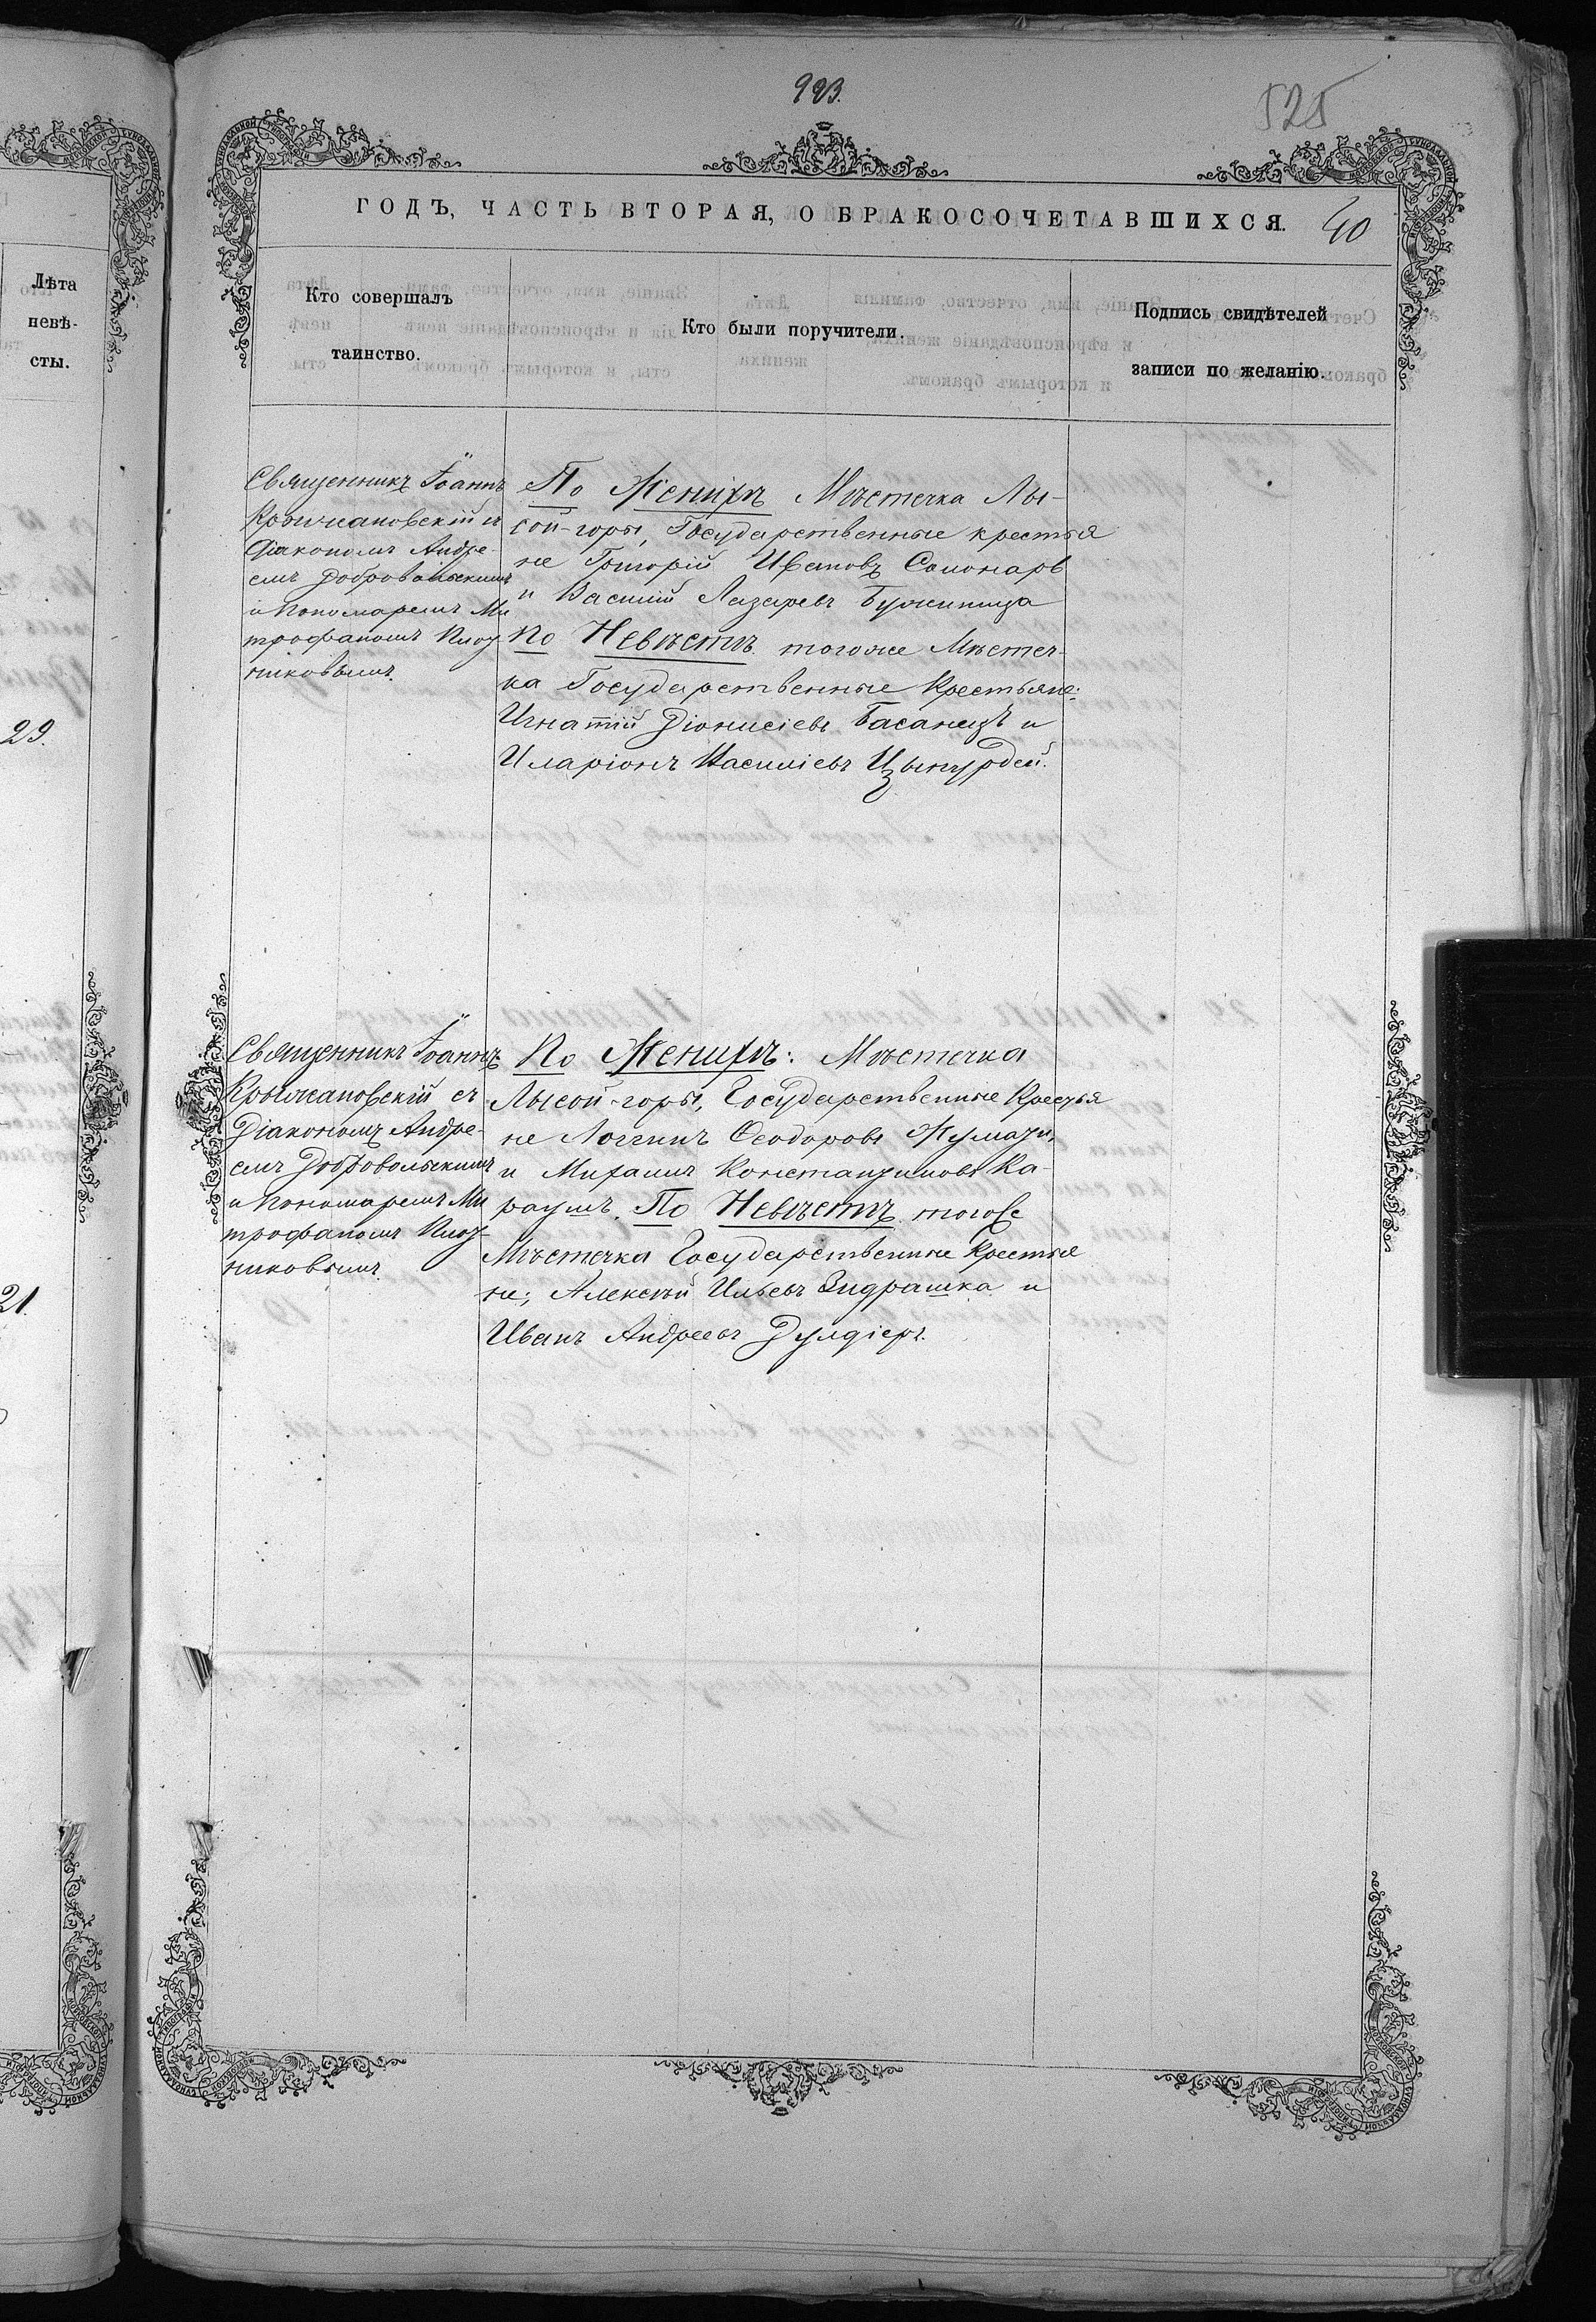 923.
525
ГОДЪ, ЧАСТЬ ВТОРАЯ, О БРАКОСОЧЕТАВШИХСЯ.
40
Лѣта
невѣ-
сты.
Кто совершалъ
таинство.
Кто были поручители.
Подпись свидѣтелей
записи по желанію.
29.
21.
Священникъ Іоаннъ
Крыжановскій съ
Діакономъ Андре-
емъ Добровольскимъ
и Пономаремъ Ми
трофаномъ Ключ-
никовымъ.
По Женихѣ Мѣстечка Лы-
сой-горы, Государственные крестья
не Григорій Ивановъ Солонарь
и Василій Лазаревъ
По Невѣстѣ тогоже Мѣстеч-
ка Государственные Крестьяне:
Игнатій Діонисіевъ Басанецъ и
Иларіонъ Василіевъ
Священникъ Іоаннъ
Крыжановскій съ
Діакономъ Андре-
емъ Добровольскимъ
и Пономаремъ Ми
трофаномъ Ключ-
никовымъ.
По Женихѣ: Мѣстечка
Лысой-горы, Государственные Крестья
не Логгинъ Ѳеодоровъ
и Михаилъ Константиновъ Ка-
раушъ. По Невѣстѣ тогоже
Мѣстечка Государственные Крестья
не; Алексѣй Ильевъ Андрашка и
Иванъ Андреевъ Дулгіеръ.